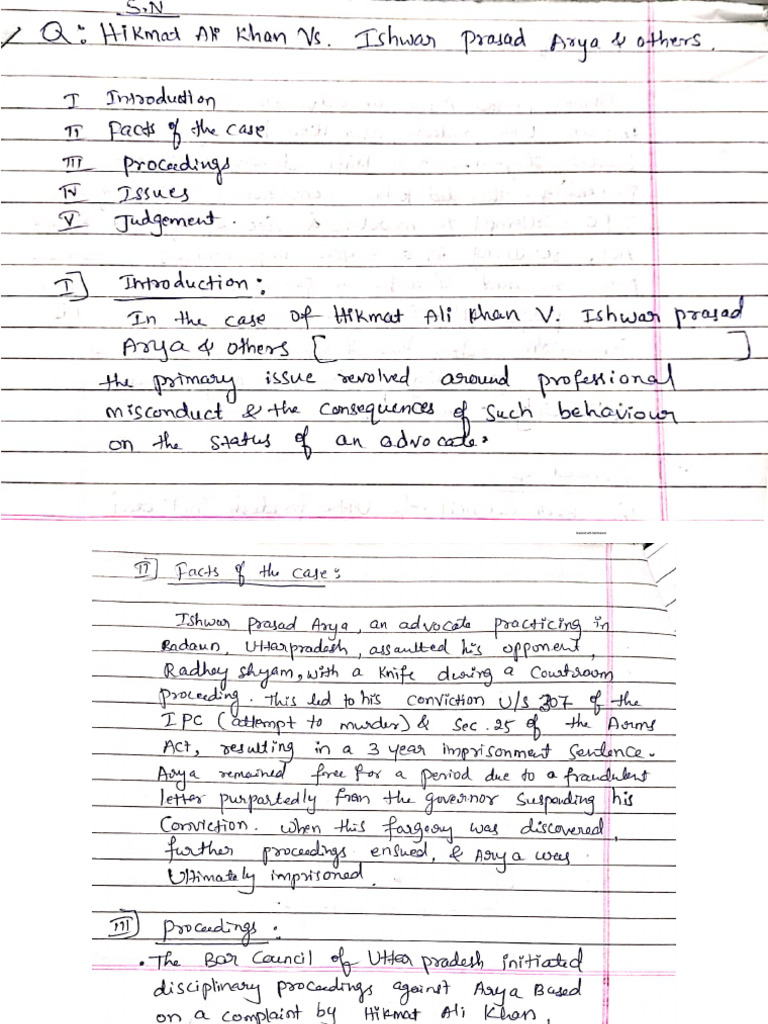 S.N
Q: Hikmat Ali Khan Vs. Ishwar Prasad Arya & others.
I Introduction
II Facts of the case
III Proceedings
IV Issues
V Judgement.
I] Introduction:
In the case of Hikmat Ali Khan V. Ishwar prasad
Arya & others [ ]
the primary issue revolved around professional
misconduct & the consequences of such behaviour
on the status of an advocate.
II] Facts of the case:
Ishwar Prasad Arya, an advocate practicing in
Badaun, Uttarpradesh, assaulted his opponent,
Radhey shyam, with a knife during a Courtroom
proceeding. This led to his conviction U/s 307 of the
IPC (attempt to murder) & Sec. 25 of the Arms
Act, resulting in a 3 year imprisonment sentence.
Arya remained free for a period due to a fraudulent
letter purpartedly from the governor suspending his
Conviction. When this fargery was discovered,
further proceedings ensued, & Arya was
Ultimately imprisoned.
III] Proceedings:
• The Bar Council of Uttar pradesh initiated
disciplinary proceedings against Arya Based
on a complaint by Hikmat Ali Khan,